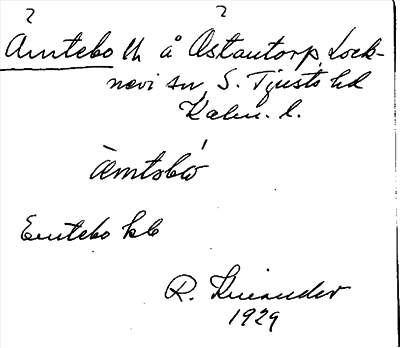 ? ?
Ämtebo lh å Åstantorp, Lock-
nevi sn, S. Tjusts hd
Kalm. l.
ämtsbo
Emtebo kb
R. Kinander
1929